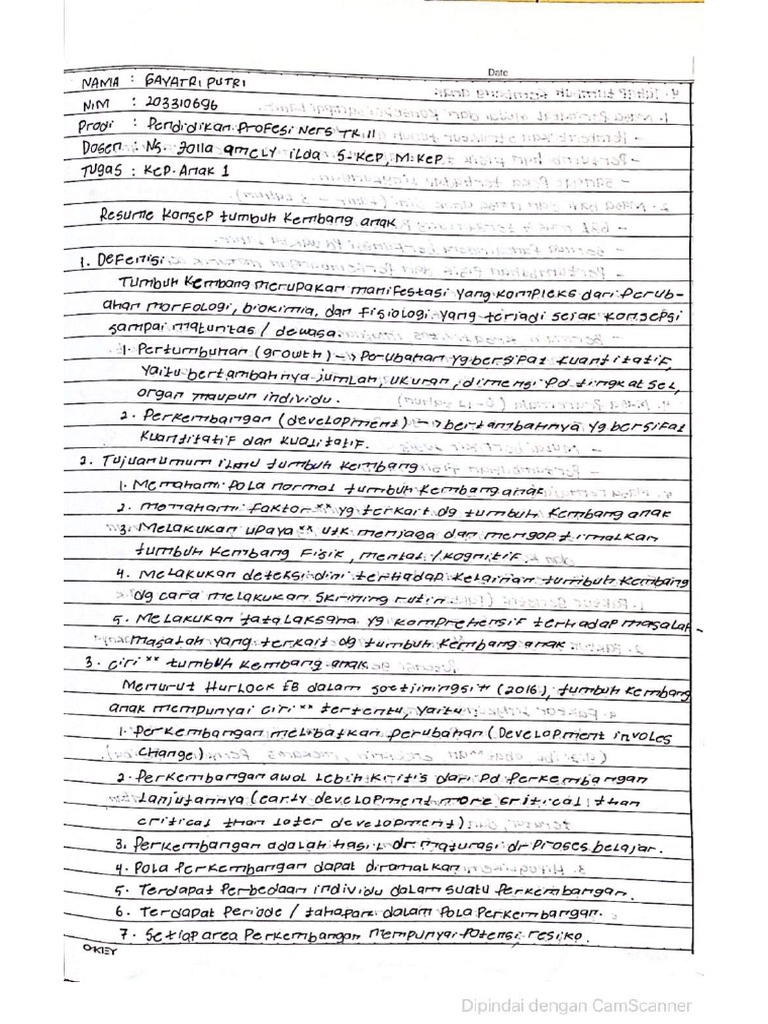 Date
NAMA : GAYATRI PUTRI
NIM : 203310696
Prodi : Pendidikan Profesi Ners TK.II
Dosen : Ns. Zolla amely ilda S.Kep, M.Kep
Tugas : Kep. Anak 1
Resume Konsep tumbuh Kembang anak
1. Defenisi
Tumbuh Kembang merupakan manifestasi yang kompleks dari perub-
ahan morfologi, biokimia, dan fisiologi yang terjadi sejak konsepsi
sampai maturitas / dewasa.
1. Pertumbuhan (growth) --> Perubahan yg bersifat kuantitatif,
yaitu bertambahnya jumlah, ukuran, dimensi pd tingkat sel,
organ maupun individu.
2. Perkembangan (development) --> bertambahnya yg bersifat
kuantitatif dan kualitatif.
2. Tujuan umum ilmu tumbuh kembang
1. Memahami pola normal tumbuh kembang anak
2. memahami faktor ** yg terkait dg tumbuh kembang anak
3. Melakukan upaya ** utk menjaga dan mengoptimalkan
tumbuh kembang fisik, mental, / kognitif.
4. Melakukan deteksi dini terhadap kelainan tumbuh kembang
dg cara melakukan skrining rutin.
5. Melakukan tatalaksana yg komprehensif terhadap masalah-
masalah yang terkait dg tumbuh kembang anak.
3. Ciri ** tumbuh kembang anak
Menurut Hurlock EB dalam soetjiningsih (2016), tumbuh kembang
anak mempunyai ciri ** tertentu, yaitu :
1. Perkembangan melibatkan perubahan (Development involes
Change)
2. Perkembangan awal lebih kritis dari pd perkembangan
lanjutannya (early development more critical than
critical than later development)
3. Perkembangan adalah hasil dr maturasi dr proses belajar.
4. Pola perkembangan dapat diramalkan
5. Terdapat perbedaan individu dalam suatu perkembangan.
6. Terdapat periode / tahapan dalam pola perkembangan.
7. Setiap area perkembangan mempunyai potensi resiko.
OKEY
Dipindai dengan CamScanner